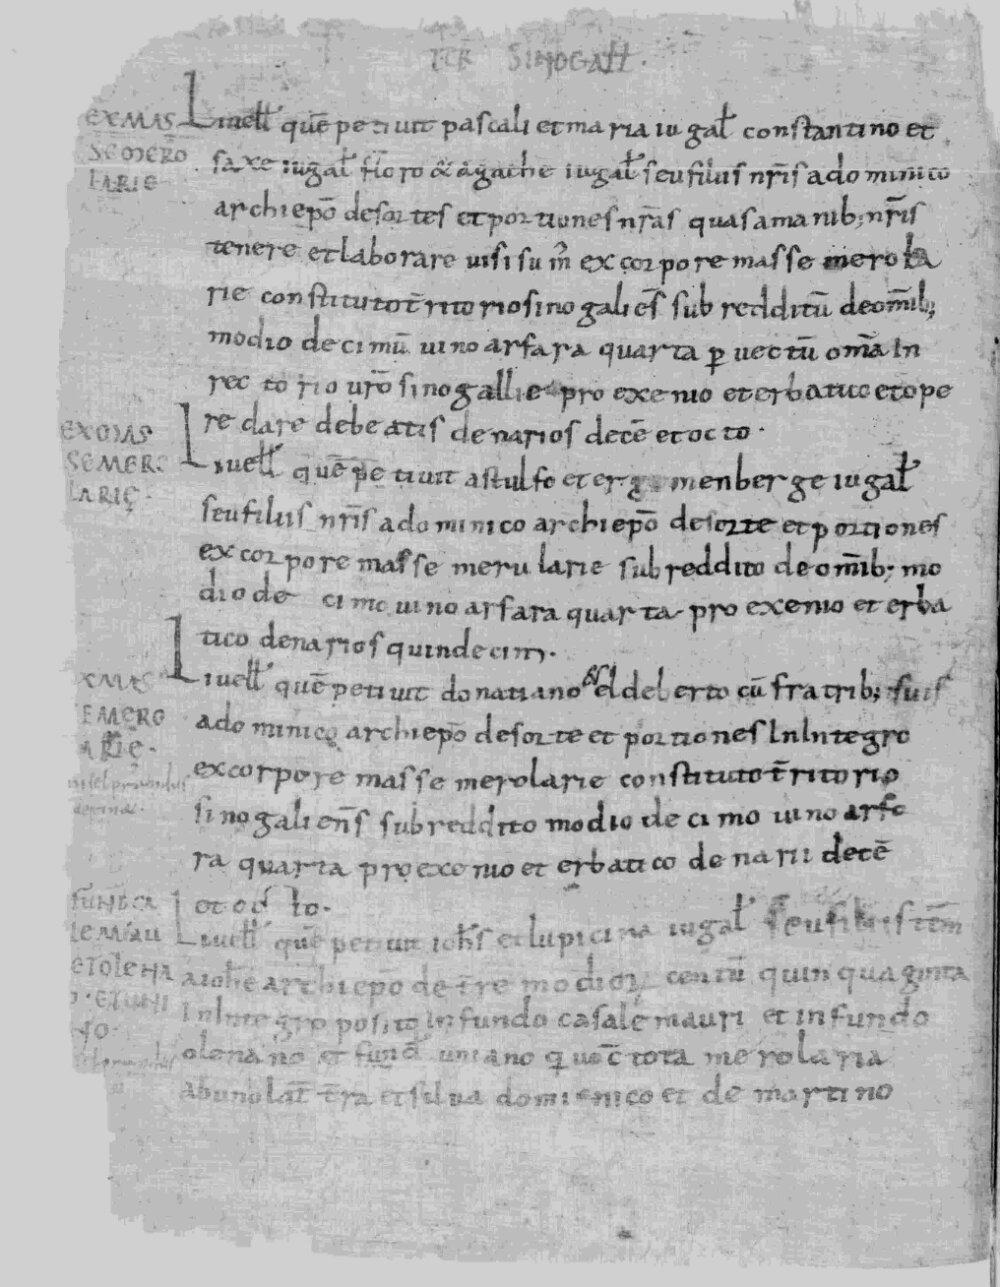 TER̄ SINOGAƚƚ.
EXMAS
SEMERO
LARIE
Liuełł quē petiuit pascali et maria iugał constantino et
saxe iugał floro & agathe iugał seu filiis nr̄is a dominico
archiepō de sortes et portiones nr̄as quas a manib; nr̄is
tenere et laborare uisi sum̄ ex corpore masse merola
rie constituto t̄ritorio sinogaliēs sub redditū de om̄ib;
modio decimū uino anfara quarta ꝑ uectū om̄a In
rectorio ur̄o sinogallie pro exenio et erbatico et ope
re dare debeatis denarios decē et octo.
EXMAS
SEMERO
LARIĘ.
Liuełł quē petiuit astulfo et ermenberge iugał
seu filiis nr̄is a dominico archiepō de sorte et portiones
ex corpore masse merularie sub reddito de om̄ib; mo
dio decimo uino anfara quarta pro exenio et erba
tico denarios quindecim.
XMAS
EMERO
ARIE.
Liuełł quē petiuit donatiano eldeberto cū fratrib; suis
a dominico archiepō de sorte et portiones In Integro
ex corpore masse merolarie constituto t̄ritorio
sinogaliēns sub reddito modio decimo uino anfo
ra quarta pro exenio et erbatico denarii decē
et octo.
FUND CA
LEMAU
ETOLENA
ETUNI
Liuełł quē petiuit ioħs et lupicina iugał seu filiis
a ioħe archiepō de t̄re modioꝝ centū quinquaginta
In Integro posito In fundo casale mauri et in fundo
olenano et fund uniano tota merolaria
t̄ra et silua dominico et de martino